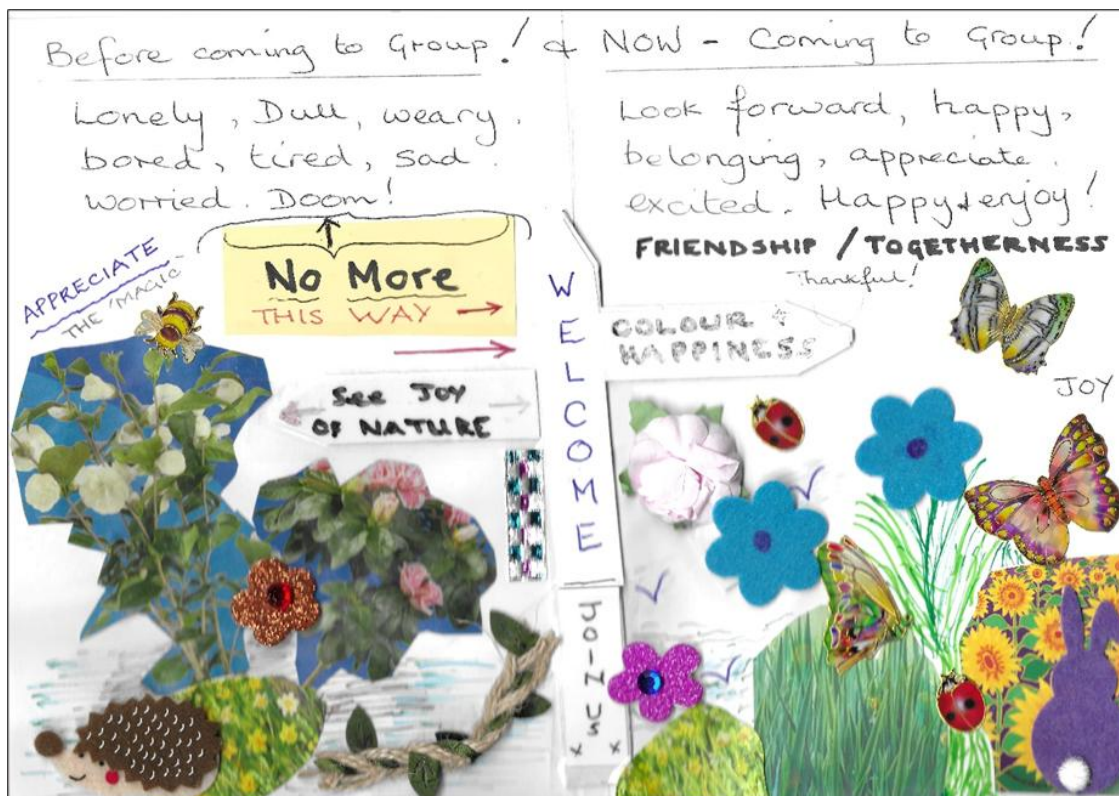 Before coming to Group! & NOW - Coming to Group!
Lonely, Dull, weary.
bored, tired, sad.
worried. Doom!
Look forward, happy,
belonging, appreciate.
excited. Happy & enjoy!
FRIENDSHIP / TOGETHERNESS
Thankful!
APPRECIATE
THE 'MAGIC'
No More
THIS WAY
See JOY
OF NATURE
WELCOME
COLOUR +
HAPPINESS
JOY
JOIN US
x x